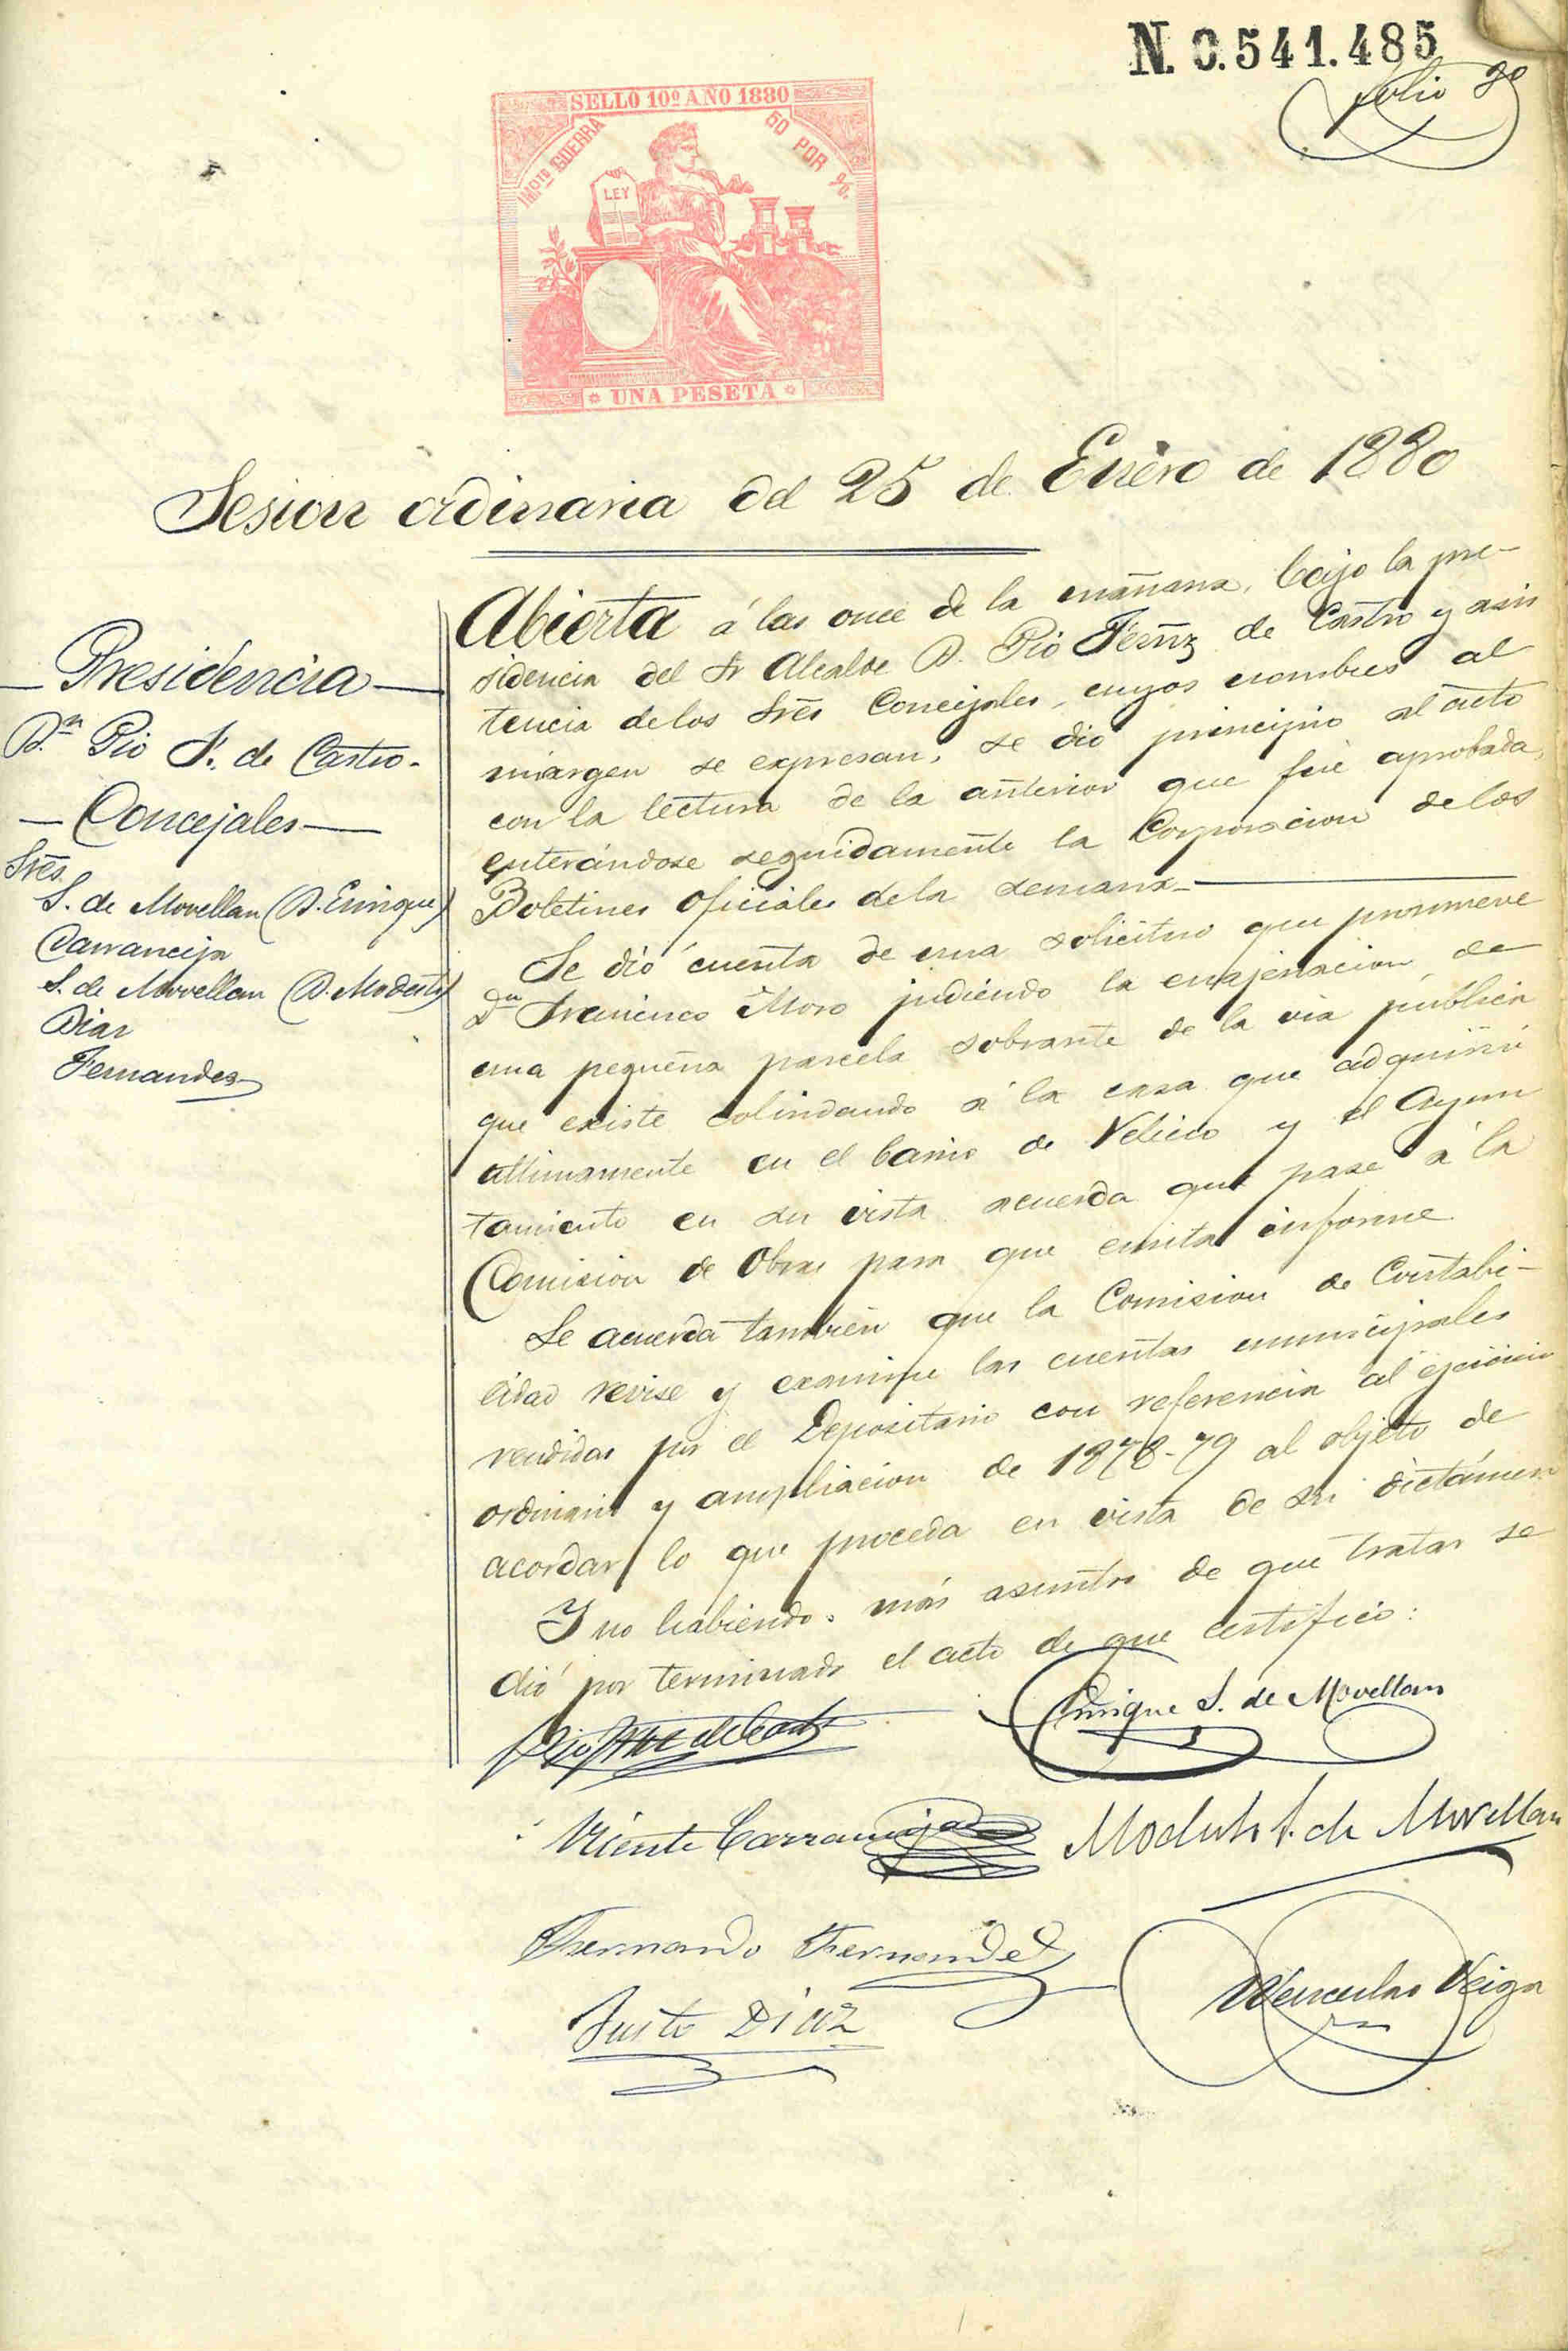 N. 0.541.485
folio
SELLO 10º AÑO 1880
IMPTO GUERRA
50 POR %
LEY
UNA PESETA
Sesion ordinaria del 25 de Enero de 1880
Presidencia
Dn Pio F. de Castro.
Concejales
Sres
S. de Movellan (D. Enrique)
Carranceja
S. de Movellan (D. Modesto)
Diaz
Fernandez
Abierta á las once de la mañana, bajo la pre-
sidencia del Sr Alcalde D. Pio Fernz de Castro y asis
tencia de los Sres Concejales, cuyos nombres al
márgen se expresan, se dió principio al acto
con la lectura de la anterior que fué aprobada,
enterándose seguidamente la Corporacion de los
Boletines oficiales de la semana
Se dió cuenta de una solicitud que promueve
Dn Francisco Moro pidiendo la enajenacion de
una pequeña parcela sobrante de la via pública
que existe colindando á la casa que adquirió
ultimamente en el barrio de Velecio y el Ayun
tamiento en su vista acuerda que pase á la
Comision de Obras para que emita informe.
Se acuerda tambien que la Comision de Contabi-
lidad revise y examine las cuentas municipales
rendidas por el Depositario con referencia al ejercicio
ordinario y ampliacion de 1878-79 al objeto de
acordar lo que proceda en vista de su dictámen
Y no habiendo más asuntos de que tratar se
dió por terminado el acto de que certifico:
Pio Fernz de Castro
Enrique S. de Movellan
Vicente Carranceja
Modesto S. de Movellan
Fernando Fernandez
Justo Diaz
Wenceslao Veiga